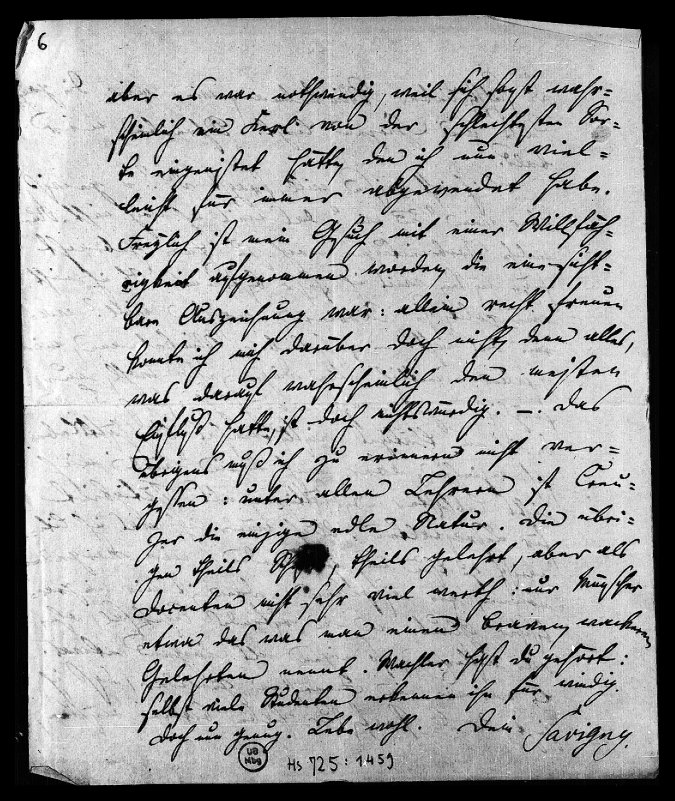 6
aber es war nothwendig, weil sich sonst wahr-
scheinlich ein Kerl von der schlechtesten Sor-
te eingenistet hätte, den ich nun viel-
leicht für immer abgewendet habe.
Freylich ist mein Gesuch mit einer Willfäh-
rigkeit aufgenommen worden, die eine sicht-
bare Auszeichnung war: allein recht freuen
konnte ich mich darüber doch nicht, denn alles,
was darauf wahrscheinlich den meisten
Einfluß hatte, ist doch nichtswürdig. – Das
übrigens muß ich zu erinnern nicht ver-
gessen: unter allen Lehrern ist Creu-
zer die einzige edle Natur. Die übri-
gen theils , theils gelehrt, aber als
Docenten nicht sehr viel werth: nur Münscher
etwa das was man einen braven, wackeren
Gelehrten nennt. Wachler hast du gehört:
selbst viele Studenten erkennen ihn für windig.
Doch nun genug. Lebe wohl. Dein Savigny.
UB
Mbg
Hs 725:1459